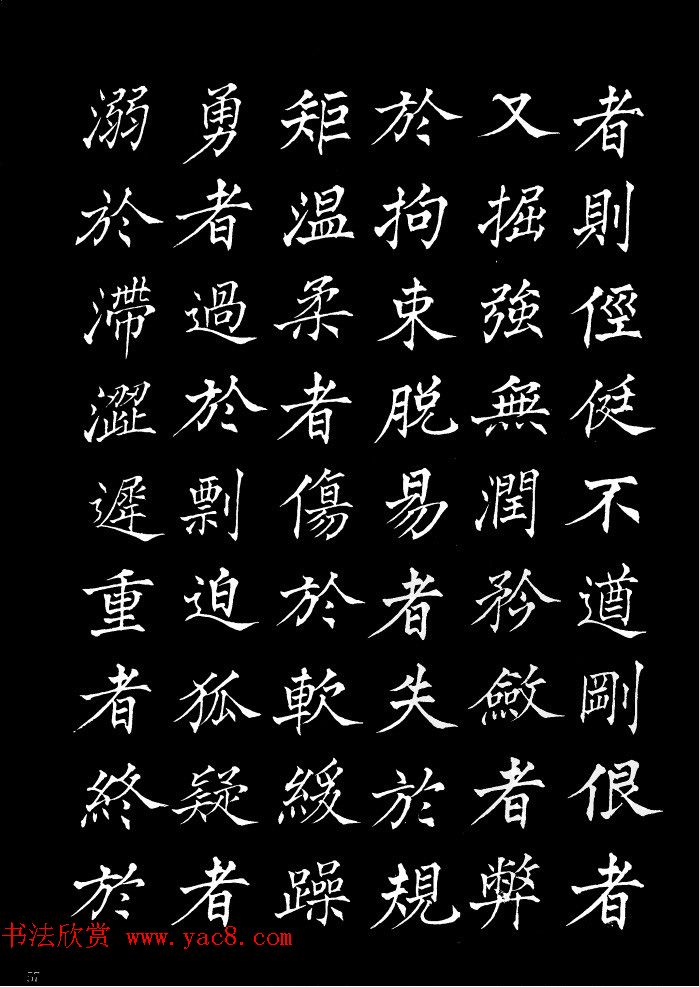 者則俓侹不遒剛佷者
又掘強無潤矜斂者弊
於拘束脫易者失於規
矩温柔者傷於軟緩躁
勇者過於剽迫狐疑者
溺於滯澀遲重者終於
书法欣赏 www.yac8.com
57